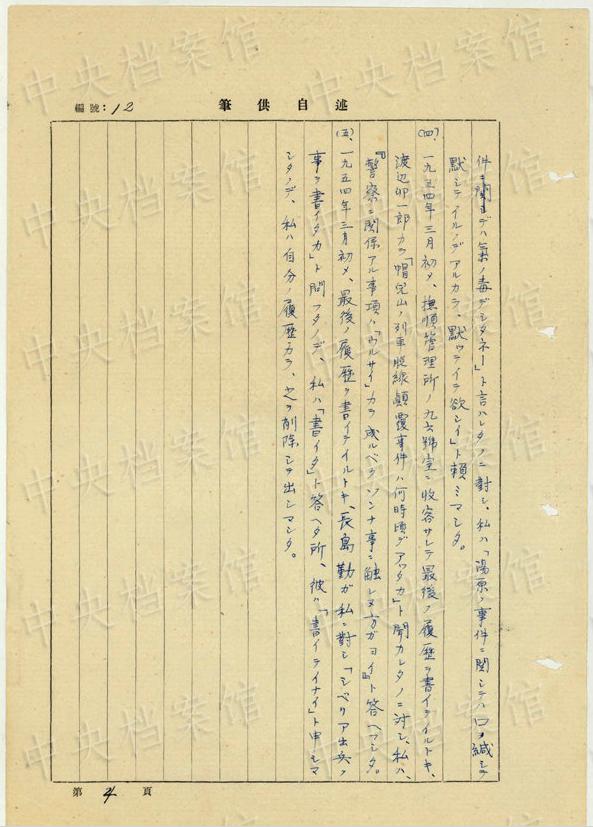 編號:12
筆供自述
件ニ関シテハ氣ノ毒デシタネー」ト言ハレタノニ對シ、私ハ「湯原ノ事件ニ関シテハ口ヲ緘シテ
默シテイルノデアルカラ、默ッテイテ欲シイ」ト頼ミマシタ。
(四)、一九五四年三月初メ、撫順管理所ノ九六號室ニ收容サレテ最後ノ履歴ヲ書イテイルトキ、
渡辺卯一郎カラ「帽児山ノ列車脱線顛覆事件ハ何時頃デアッタカ」ト聞カレタノニ対シ、私ハ、
『警察ニ関係アル事項ハ「ウルサイ」カラ成ルベクソンナ事ニ触レヌ方ガヨイ』ト答ヘマシタ。
(五)、一九五四年三月初メ、最後ノ履歴ヲ書イテイルトキ、長島勤ガ私ニ對シ「シベリア出兵ノ
事ヲ書イタカ」ト問フタノデ、私ハ「書イタ」ト答ヘタ所、彼ハ「書イテイナイ」ト申シマ
シタノデ、私ハ自分ノ履歴カラ、之ヲ削除シテ出シマシタ。
第 4 頁
中央档案馆